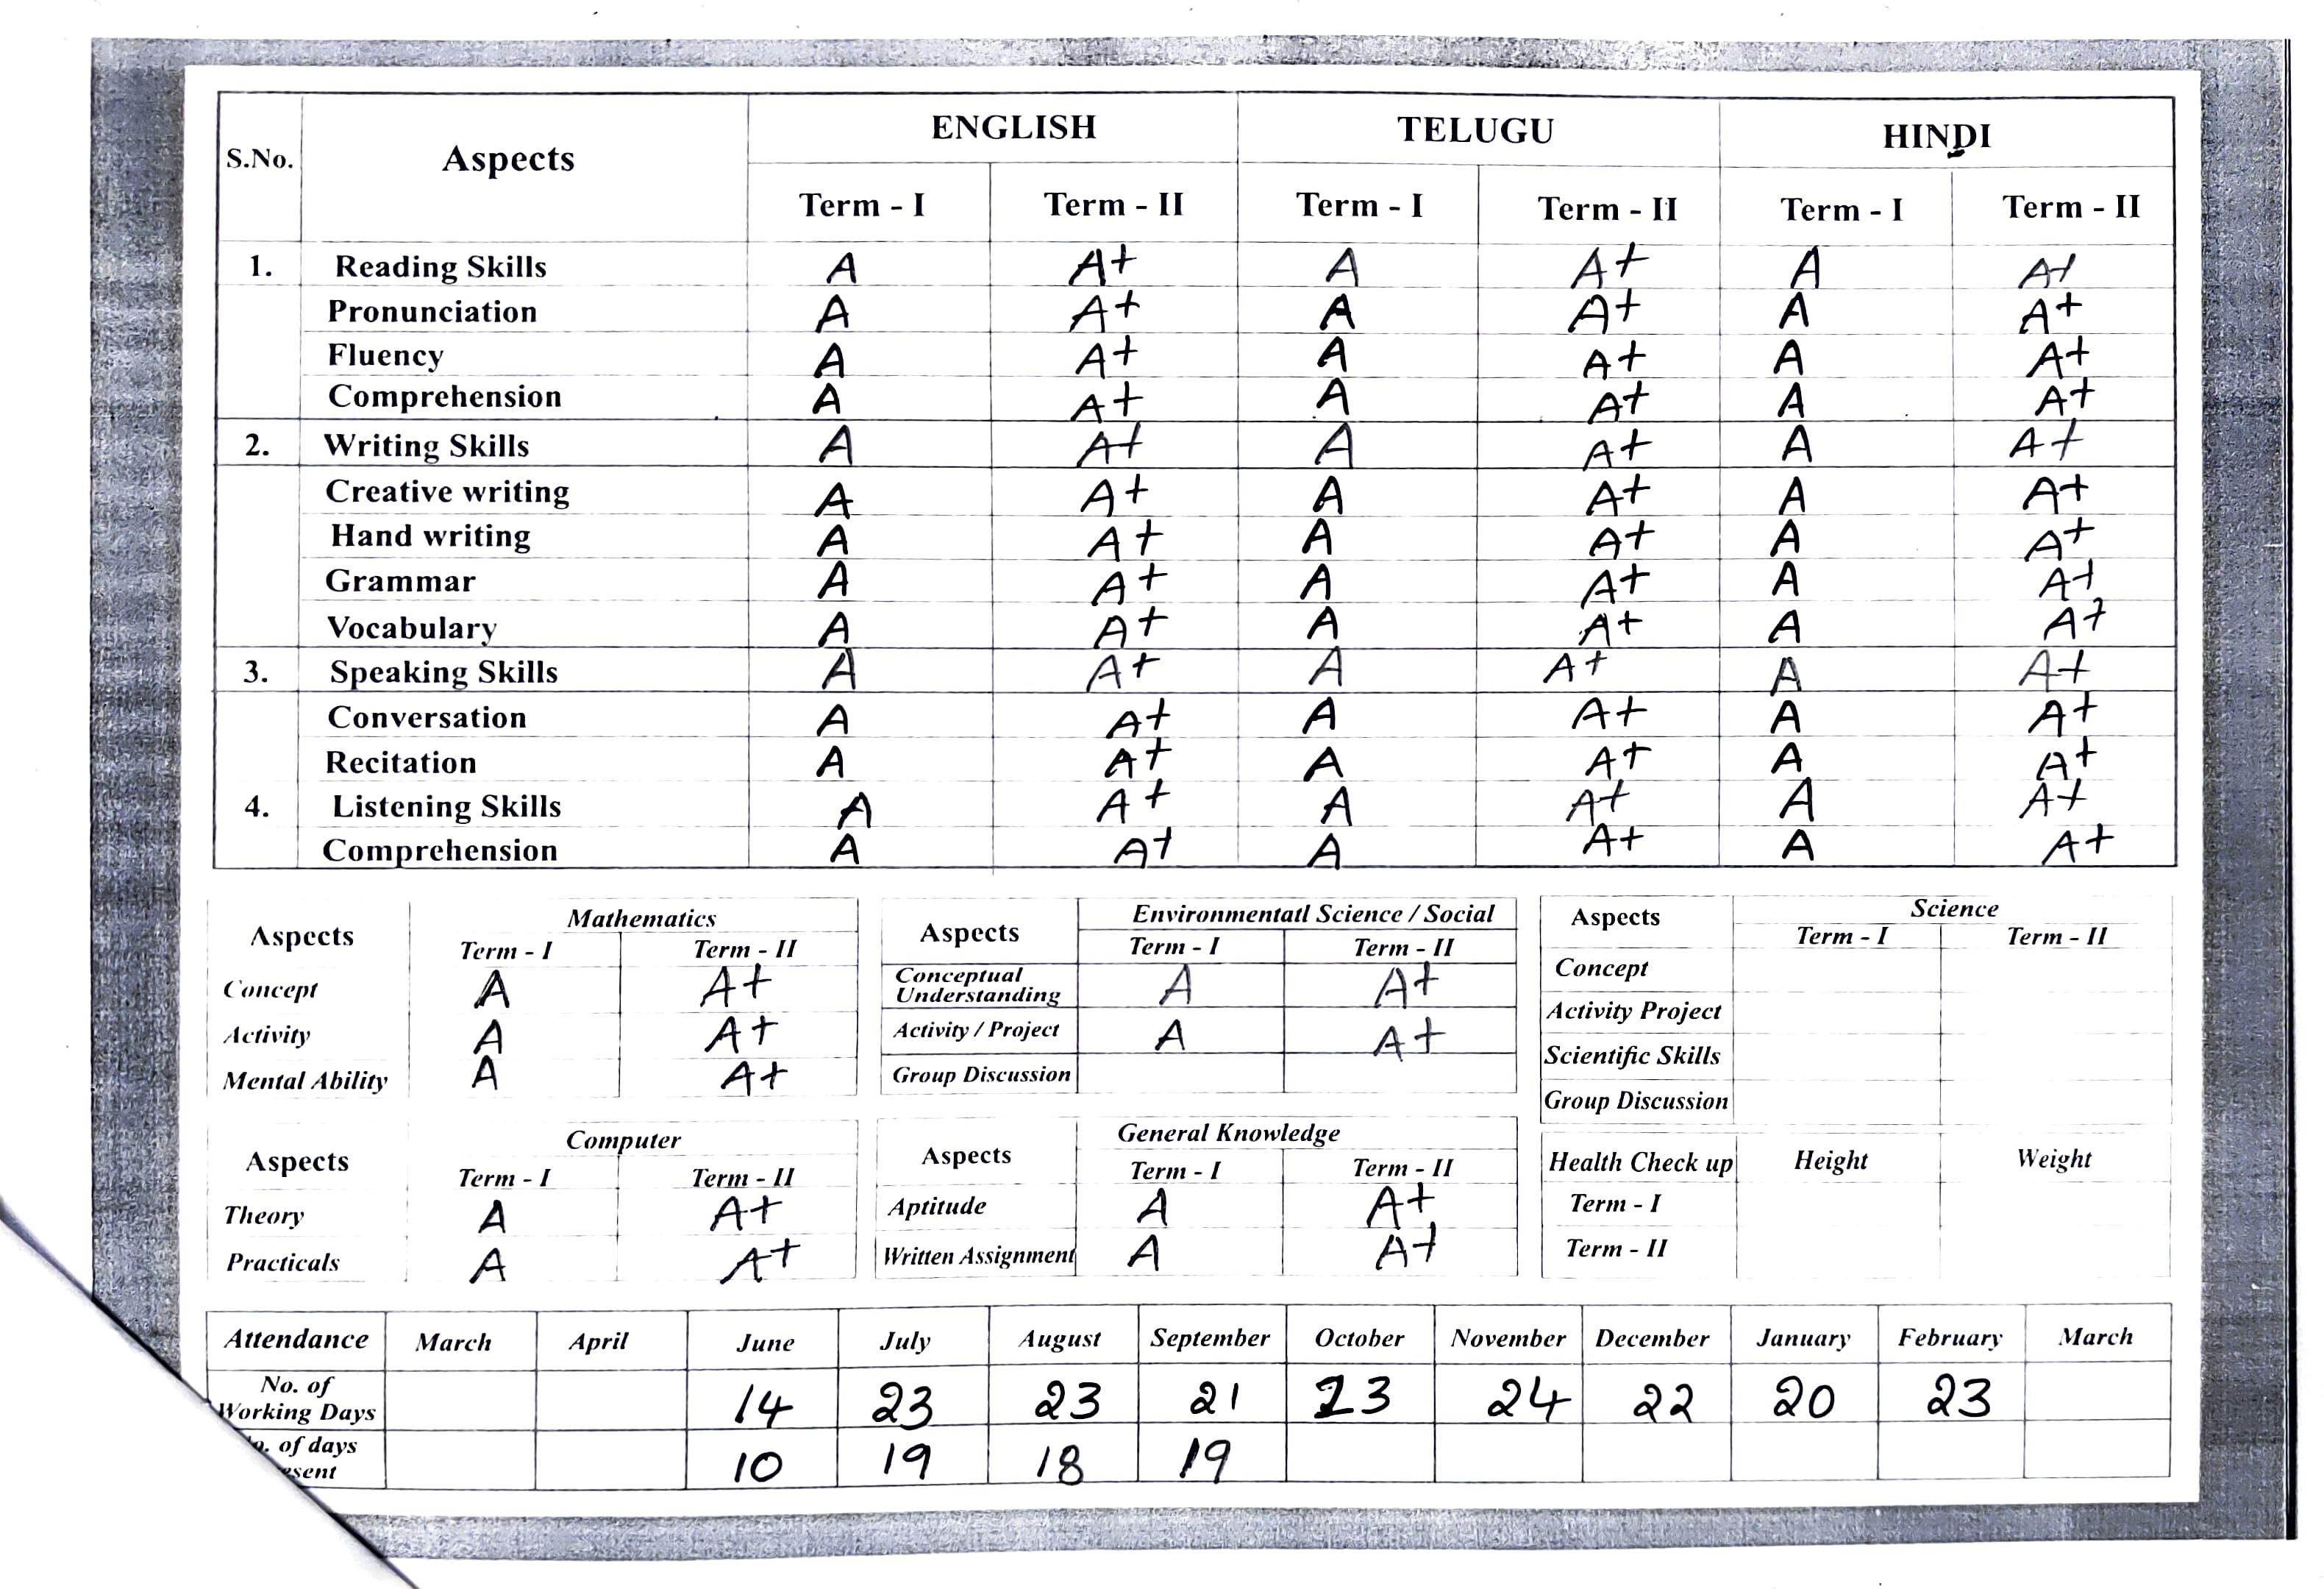 S.No. Aspects ENGLISH TELUGU HINDI
Term - I Term - II Term - I Term - II Term - I Term - II
1. Reading Skills A A+ A A+ A A+
Pronunciation A A+ A A+ A A+
Fluency A A+ A A+ A A+
Comprehension A A+ A A+ A A+
2. Writing Skills A A+ A A+ A A+
Creative writing A A+ A A+ A A+
Hand writing A A+ A A+ A A+
Grammar A A+ A A+ A A+
Vocabulary A A+ A A+ A A+
3. Speaking Skills A A+ A A+ A A+
Conversation A A+ A A+ A A+
Recitation A A+ A A+ A A+
4. Listening Skills A A+ A A+ A A+
Comprehension A A+ A A+ A A+
Aspects Mathematics
Term - I Term - II
Concept A A+
Activity A A+
Mental Ability A A+
Aspects Environmentatl Science / Social
Term - I Term - II
Conceptual
Understanding A A+
Activity / Project A A+
Group Discussion
Aspects Science
Term - I Term - II
Concept
Activity Project
Scientific Skills
Group Discussion
Aspects Computer
Term - I Term - II
Theory A A+
Practicals A A+
Aspects General Knowledge
Term - I Term - II
Aptitude A A+
Written Assignment A A+
Health Check up Height Weight
Term - I
Term - II
Attendance March April June July August September October November December January February March
No. of
Working Days 14 23 23 21 23 24 22 20 23
of days
10 19 18 19